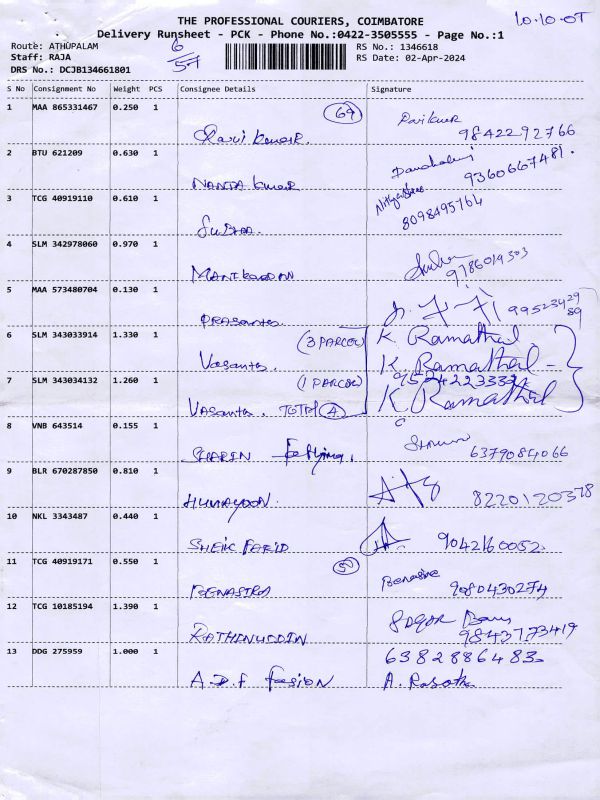 THE PROFESSIONAL COURIERS, COIMBATORE
10.10.07
Delivery Runsheet - PCK - Phone No.:0422-3505555 - Page No.:1
Route: ATHUPALAM
6/57
RS No.: 1346618
Staff: RAJA
RS Date: 02-Apr-2024
DRS No.: DCJB134661801
S No Consignment No Weight PCS Consignee Details Signature
1 MAA 865331467 0.250 1 69
Ravi kumar. 9842292766
2 BTU 621209 0.630 1
NANDA kumar 9360667481.
3 TCG 40919110 0.610 1
8098495764
4 SLM 342978060 0.970 1
MANIKANDAN 9786014303
5 MAA 573480704 0.130 1
PRASANTH. 9952342989
6 SLM 343033914 1.330 1 (3 PARCEL) K. Ramathal
Vasantha K. Ramathal
7 SLM 343034132 1.260 1 (1 PARCEL) 9524223332
VASANTHA. TOTAL 4 K Ramathal
8 VNB 643514 0.155 1
6379084066
9 BLR 670287850 0.810 1
HUMAYOON. 8220120378
10 NKL 3343487 0.440 1
SHEIK FARID 9042160052.
11 TCG 40919171 0.550 1 50
9080430274
12 TCG 10185194 1.390 1
RATHINUDDIN 9843773419
13 DDG 275959 1.000 1 6382886483
A.D.F fasion